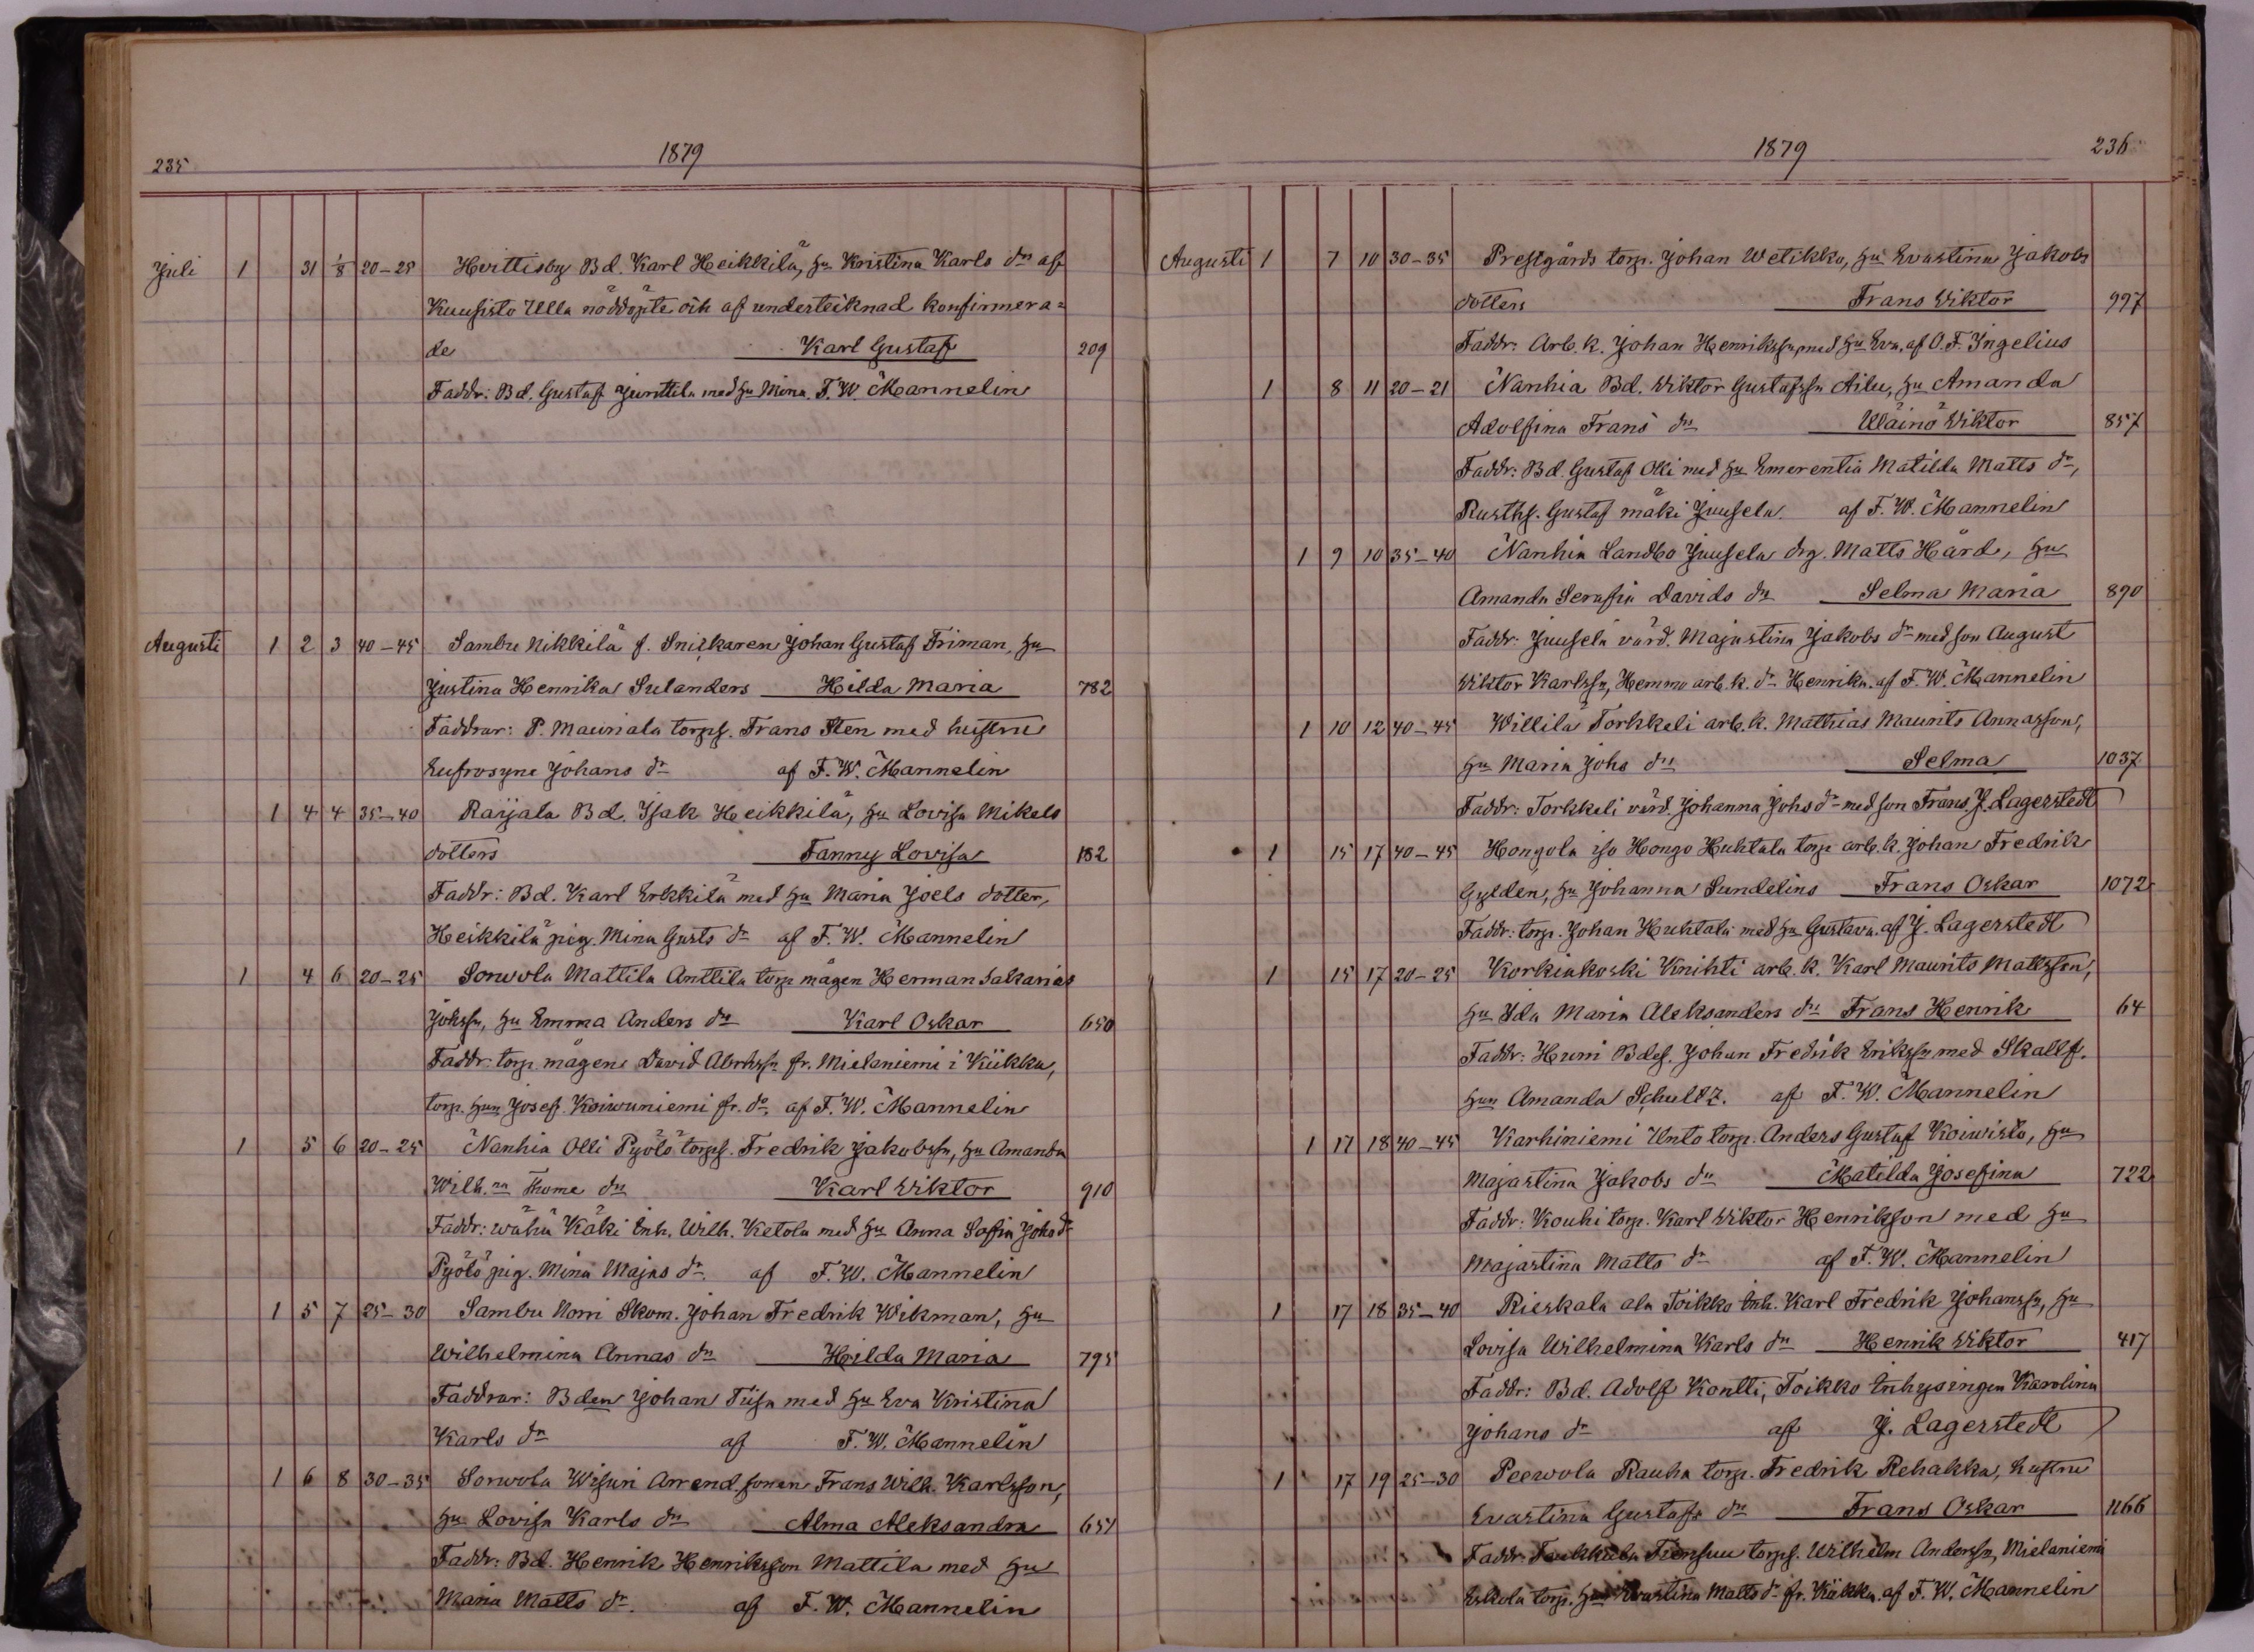 235
1879
Juli 1 31 1/8 20-25 Hvittisby Bd. Karl Heikkilä, hu Kristina Karls drs af
Kuusisto Ulla nöddöpte och af undertecknad konfirmera=
de Karl Gustaf 209
Faddr: Bd. Gustaf Junttila med hu Mina. F. W. Mannelin
Augusti 1 2 3 40-45 Sambu Nikkilä f. Snickaren Johan Gustaf Friman, hu
Justina Henrika Sulanders Hilda Maria 782
Faddrar: P. Mauriala torps. Frans Sten med hustru
Eufrosyne Johans dr af F. W. Mannelin
1 4 4 35-40 Raijala Bd. Isak Heikkilä, hu Lovisa Mikels
dotters Fanny Lovisa 182
Faddr: Bd. Karl Erkkilä med hu Maria Joels dotter,
Heikkilä pig. Mina Gusts dr af F. W. Mannelin
1 4 6 20-25 Sorwola Mattila Anttila torp mågen Herman Sakarias
Johssn, hu Emma Anders drs Karl Oskar 650
Faddr: torp. mågen David Abrhssn fr. Mielaniemi i Kiikka,
torp. hun Josef. Koiwuniemi fr. do af F. W. Mannelin
1 5 6 20-25 Nanhia Olli Pyölö torps. Fredrik Jakobssn, hu Amanda
Wilh.na Thome drs Karl Viktor 910
Faddr: wähä Käki Inh. Wilh. Ketola med hu Anna Sofia Johs dr
Pyölö pig. Mina Majas dr. af F. W. Mannelin
1 5 7 25-30 Sambu Norri Skom. Johan Fredrik Wikman, hu
Wilhelmina Annas drs Hilda Maria 795
Faddrar: Bden Johan Tiisa med hu Eva Kristina
Karls dr af F. W. Mannelin
1 6 8 30-35 Sorwola Wisuri Arrend. sonen Frans Wilh. Karlsson,
hu Lovisa Karls drs Alma Aleksandra 651
Faddr: Bd. Henrik Henriksson Mattila med hu
Maria Matts dr. af F. W. Mannelin
1879
236
Augusti 1 7 10 30-35 Prestgårds torp. Johan Wetikko, hu Evastina Jakobs
dotters Frans Viktor 997
Faddr: Arb. k. Johan Henrikssn, med hu Eva. af O. F. Ingelius
1 8 11 20-21 Nanhia Bd. Viktor Gustafssn Ailu, hu Amanda
Adolfina Frans drs Wäinö Viktor 857
Faddr: Bd. Gustaf Olli med hu Emerentia Matilda Matts dr,
Rusths. Gustaf mäki Juusela. af F. W. Mannelin
1 9 10 35-40 Nanhia Landbo Juusela drg. Matts Hård, hu
Amanda Serafia Davids drs Selma Maria 890
Faddr: Juusela värd. Majastina Jakobs dr med son August
Viktor Karlssn, Hemmo arb. k. dr Henrika. af F. W. Mannelin
1 10 12 40-45 Willilä Torkkeli arb. k. Mathias Maurits Annasson,
hu Maria Johs drs Selma 1037
Faddr: Torkkeli värd. Johanna Johs dr med son Frans. J. Lagerstedt
1 15 17 40-45 Hongola iso Hongo Huhtala torp arb. k. Johan Fredrik
Gylden, hu Johanna Sundelins Frans Oskar 1072
Faddr: torp. Johan Huhtala med hu Gustava. af J. Lagerstedt
1 15 17 20-25 Korkiakoski Knihti arb. k. Karl Maurits Mattsson,
hu Ida Maria Aleksanders drs Frans Henrik 64
Faddr: Huni Bdes. Johan Fredrik Erikssn med Skallf.
hun Amanda Schultz. af F. W. Mannelin
1 17 18 40-45 Karhiniemi Unto torp. Anders Gustaf Koiwisto, hu
Majastina Jakobs drs Matilda Josefina 722
Faddr: Kouhi torp. Karl Viktor Henriksson med hu
Majastina Matts dr af F. W. Mannelin
1 17 18 35-40 Rieskala ala Toikko Inh. Karl Fredrik Johanssn, hu
Lovisa Wilhelmina Karls drs Henrik Viktor 417
Faddr: Bd. Adolf Kontti, Toikko Inhysingen Karolina
Johans dr af J. Lagerstedt
1 17 19 25-30 Peewola Rauha torp. Fredrik Rehakka, hustru
Evastina Gustafs drs Frans Oskar 1166
Faddr: Tiensuu torps. Wilhelm Anderssn, Mielaniemi
Eskola torp. hun Evastina Matts dr fr. Kiikka. af F. W. Mannelin